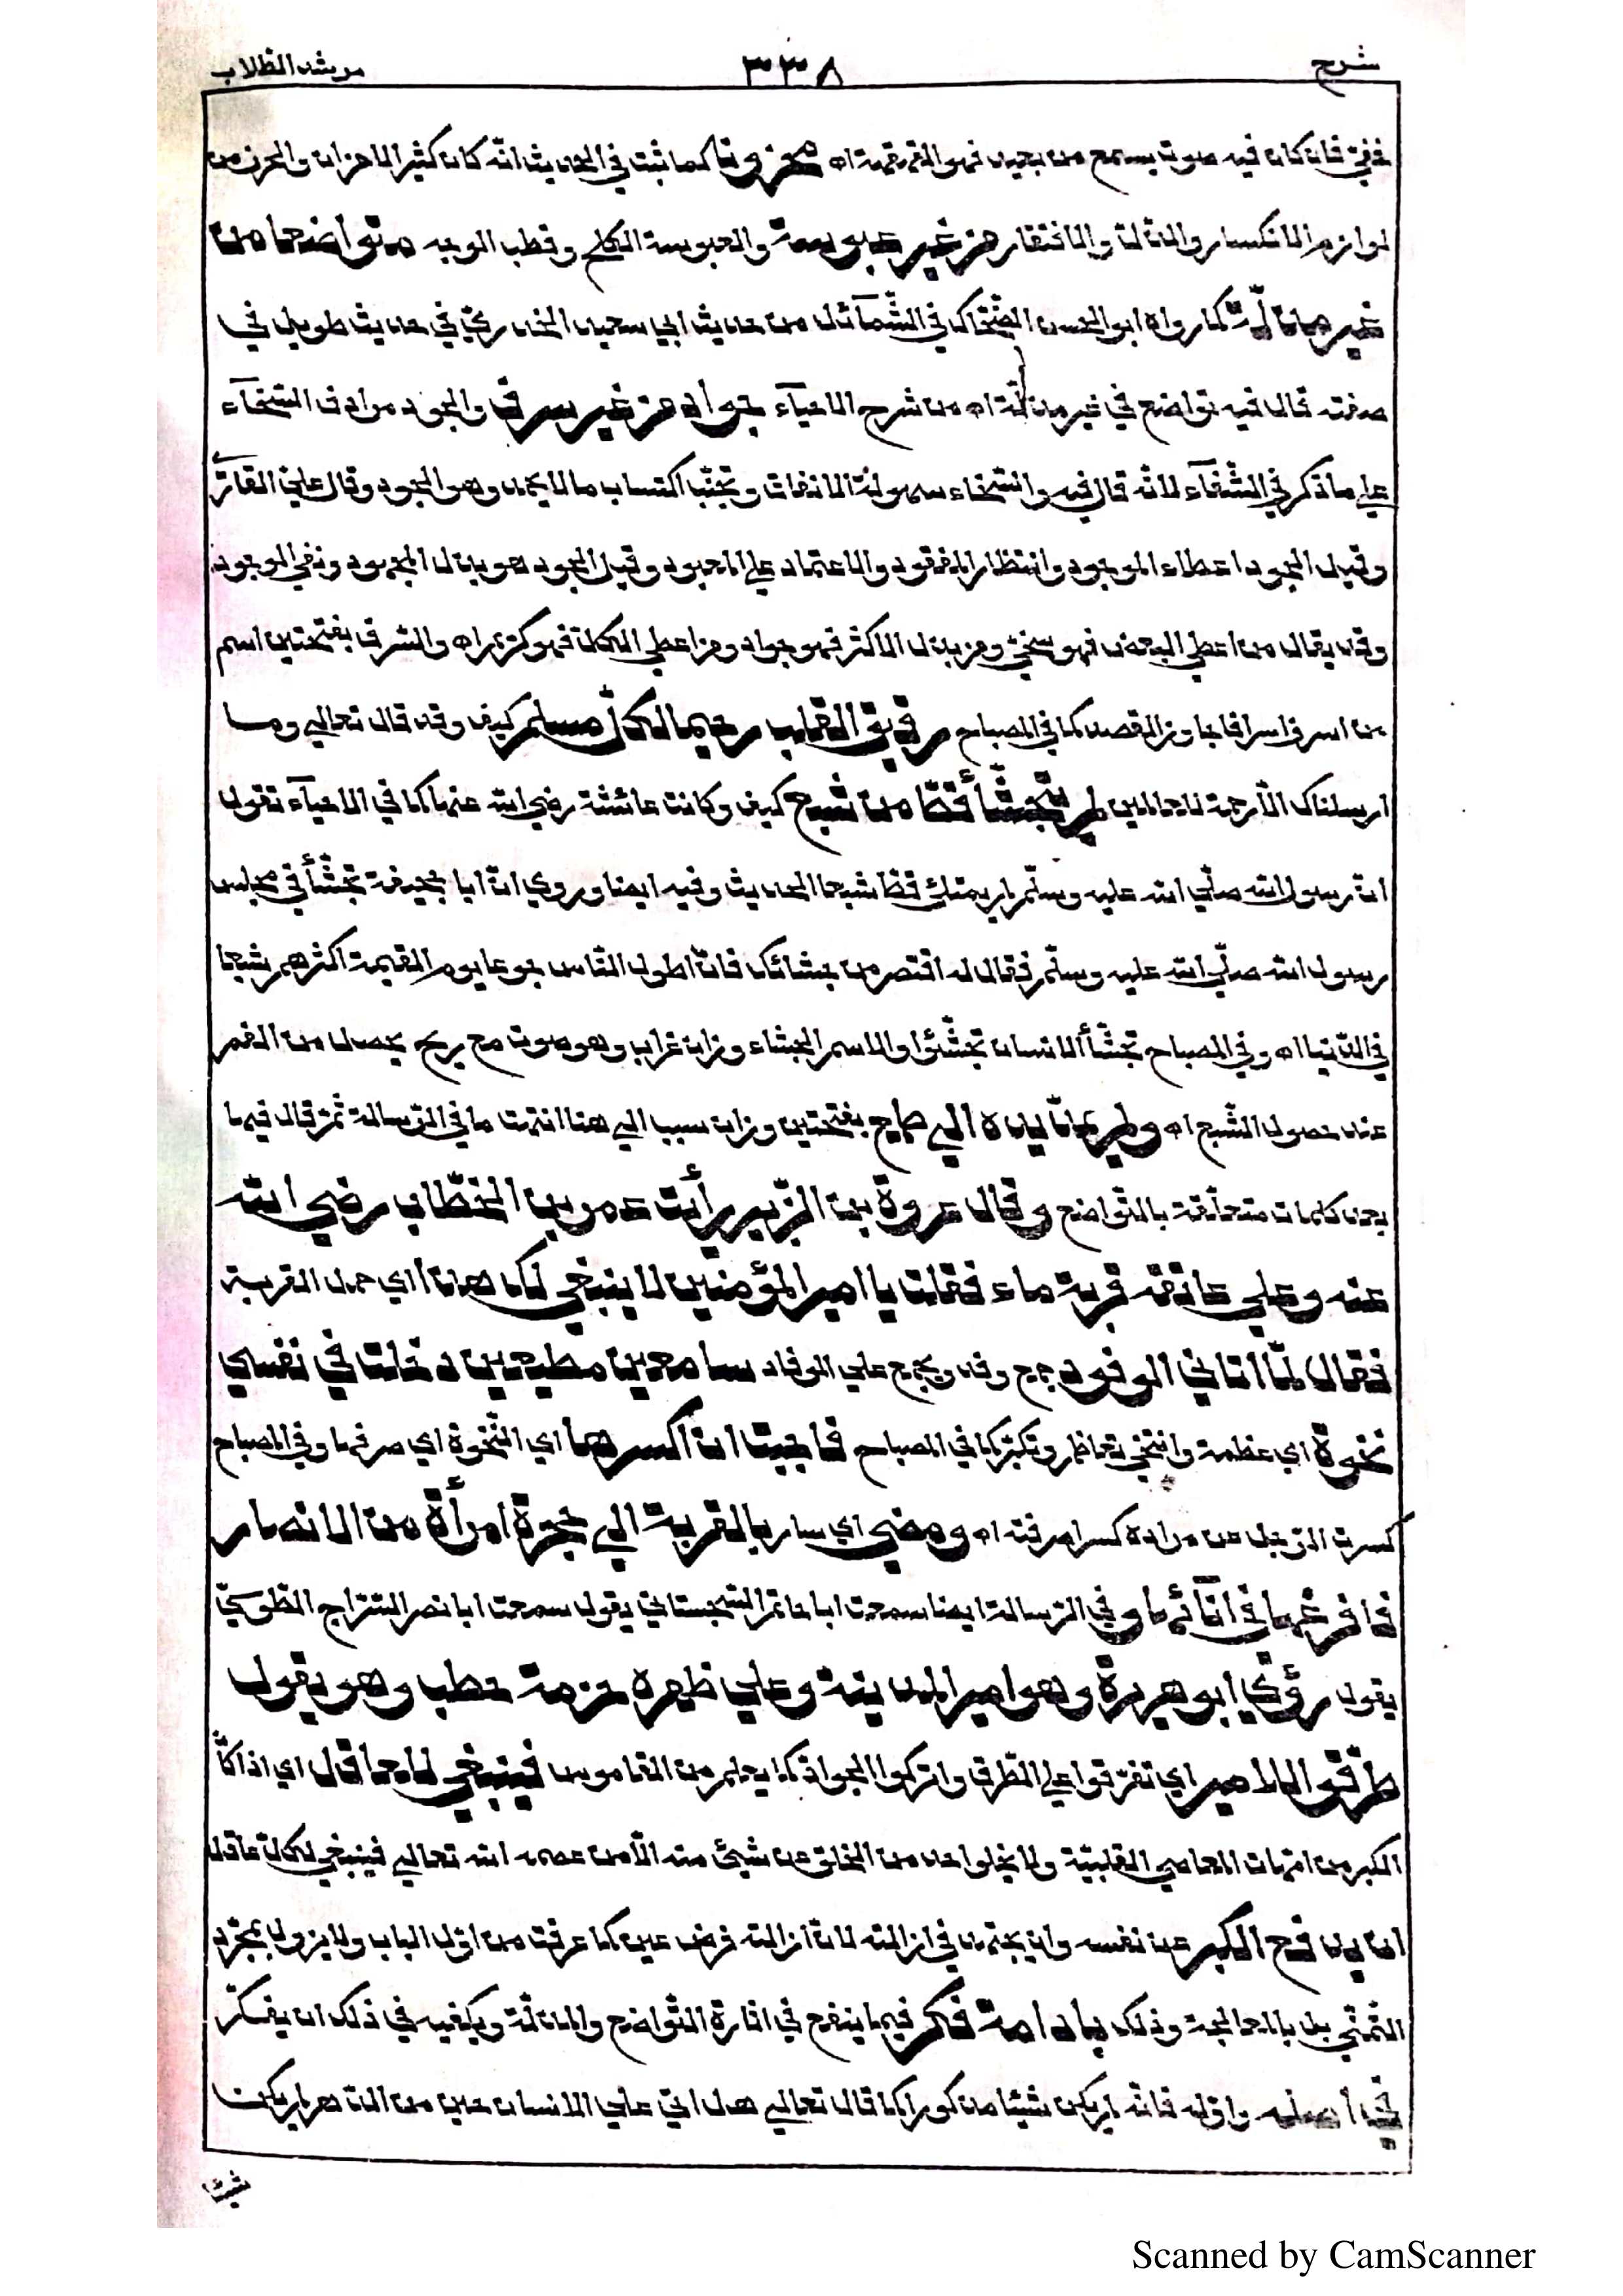 شرح ٣٣٨ مرشد الطلاب
خفيّ فان كان فيه صوت يسمع من بعيد فهو القهقهة اه محزونا كما ثبت في الحديث انّه كان كثير الاحزان والحزن من
لوازم الانكسار والذلة والافتقار من غير عبوسة والعبوسة الكلح وقطب الوجه متواضعا من
غير مذلّة كما رواه ابو الحسن الضحّاك في الشّمآئل من حديث ابي سعيد الخدريّ في حديث طويل في
صفته قال فيه تواضع في غير مذلّة اه من شرح الاحيآء جواد من غير سرف والجود مرادف السّخآء
علي ما ذكر في الشّفآء لانّه قال فيه والسّخاء سهولة الانفاق وتجنّب اكتساب ما لا يحمد وهو الجود وقال علي القارّي
وقيل الجود اعطاء الموجود وانتظار المفقود والاعتماد علي المعبود وقيل الجود هو بذل المجهود ونفي الموجود
وقد يقال من اعطي البعض فهو سخيّ ومن بذل الاكثر فهو جواد ومن اعطي الكلّ فهو كريم اه والسّرف بفتحتين اسم
من اسرف اسرافا جاوز القصد كما في المصباح رقيق القلب رحيما لكلّ مسلم كيف وقد قال تعالي وما
ارسلناك الّا رحمة للعالمين لم يتجشّأ قطّ من شبع كيف وكانت عائشة رضي الله عنها كما في الاحيآء تقول
انّ رسول الله صلّي الله عليه وسلّم لم يمتلئ قطّ شبعا الحديث وفيه ايضا وروي انّ ابا جحيفة تجشّأ في مجلس
رسول الله صلّي الله عليه وسلّم فقال له اقصر من جشائك فانّ اطول النّاس جوعا يوم القيمة اكثرهم شبعا
في الدّنيا اه وفي المصباح تجشّأ الانسان تجشّئوا والاسم الجشاء وزان غراب وهو صوت مع ريح يحصل من الفم
عند حصول الشّبع اه ولم يمدّ يده الي طمع بفتحتين وزان سبب الي هنا انتهت ما في الرّسالة ثمّ قال فيها
بعد كلمات متعلّقة بالتّواضع وقال عروة بن الزّبير رأيت عمر بن الخطّاب رضي الله
عنه وعلي عاتقه قربة ماء فقلت يا امير المؤمنين لا ينبغي لك هذا اي حمل القربة
فقال لمّا اتاني الوفود جمع وفد ويجمع علي الوفاد سامعين مطيعين دخلت في نفسي
نخوة اي عظمة وانتخي تعاظم وتكبّر كما في المصباح فاحببت ان اكسرها اي النّخوة اي صرفها وفي المصباح
كسرت الرّجل عن مراده كسرا صرفته اه ومضي اي سار بالقربة الي حجرة امرأة من الانصار
فافرغها في انآئها وفي الرّسالة ايضا سمعت ابا حاتم السّجستاني يقول سمعت ابا نصر السّرّاج الطّوسيّ
يقول رؤي ابو هريرة وهو امير المدينة وعلي ظهره حزمة حطب وهو يقول
طرّقوا للامير اي تفرّقوا علي الطّرق واتركوا الجوادّ كما يعلم من القاموس فينبغي للعاقل اي اذا كان
الكبر من امّهات المعاصي القلبيّة ولا يخلو احد من الخلق عن شيئ منه الّا من عصمه الله تعالي فينبغي لكلّ عاقل
ان يدفع الكبر عن نفسه وان يجتهد في ازالته لانّ ازالته فرض عين كما عرفت من اوّل الباب ولا يزول بمجرّد
التّمنّي بل بالمعالجة وذلك بادامة فكر فيما ينفع في اثارة التّواضع والمذلّة ويكفيه في ذلك ان يفكّر
في أصله واوّله فانّه لم يكن شيئا مذكورا كما قال تعالي هل اتي علي الانسان حين من الدّهر لم يكن
شيئا
Scanned by CamScanner